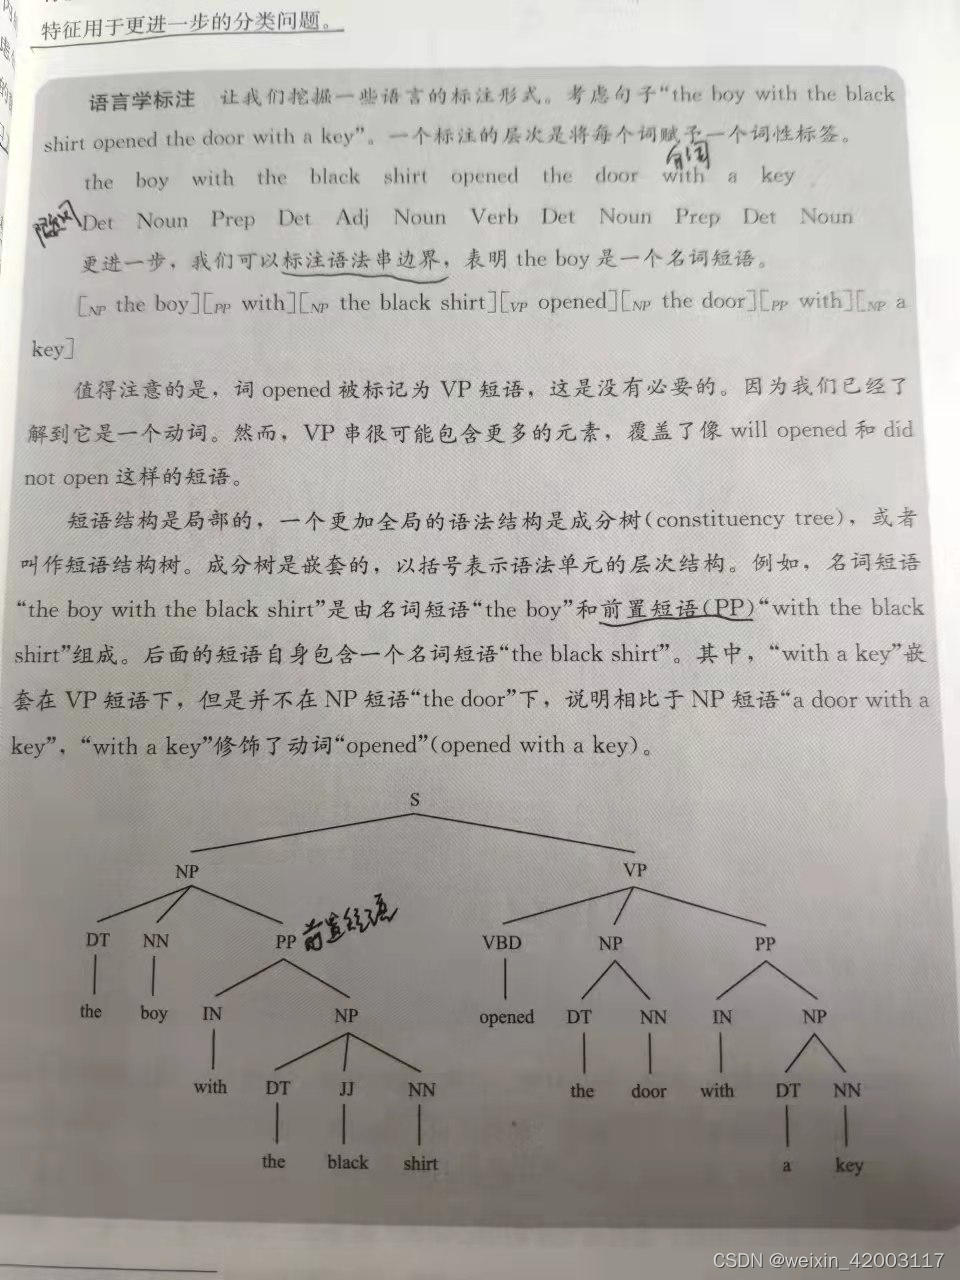 特征用于更进一步的分类问题。
语言学标注 让我们挖掘一些语言的标注形式。考虑句子“the boy with the black
shirt opened the door with a key”。一个标注的层次是将每个词赋予一个词性标签。
介词
the boy with the black shirt opened the door with a key
限定词
Det Noun Prep Det Adj Noun Verb Det Noun Prep Det Noun
更进一步，我们可以标注语法串边界，表明 the boy 是一个名词短语。
[NP the boy][PP with][NP the black shirt][VP opened][NP the door][PP with][NP a
key]
值得注意的是，词 opened 被标记为 VP 短语，这是没有必要的。因为我们已经了
解到它是一个动词。然而，VP 串很可能包含更多的元素，覆盖了像 will opened 和 did
not open 这样的短语。
短语结构是局部的，一个更加全局的语法结构是成分树(constituency tree)，或者
叫作短语结构树。成分树是嵌套的，以括号表示语法单元的层次结构。例如，名词短语
“the boy with the black shirt”是由名词短语“the boy”和前置短语(PP)“with the black
shirt”组成。后面的短语自身包含一个名词短语“the black shirt”。其中，“with a key”嵌
套在 VP 短语下，但是并不在 NP 短语“the door”下，说明相比于 NP 短语“a door with a
key”，“with a key”修饰了动词“opened”(opened with a key)。
S
NP VP
DT NN PP 前置短语 VBD NP PP
the boy IN NP opened DT NN IN NP
with DT JJ NN the door with DT NN
the black shirt a key
CSDN @weixin_42003117